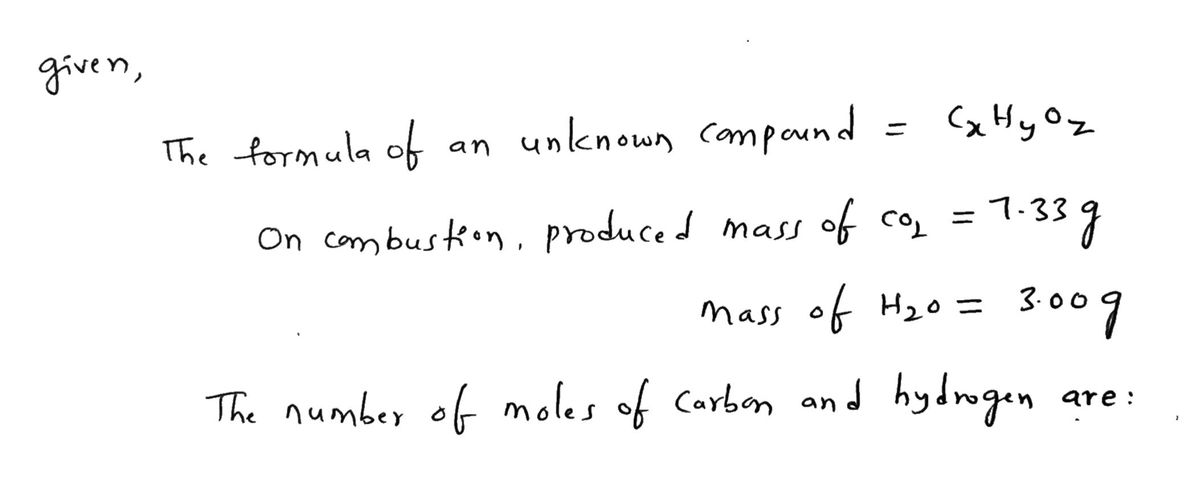 given,
The formula of an unknown compound = CxHyOz
On combustion, produced mass of CO2 = 7.33 g
mass of H2O = 3.00 g
The number of moles of carbon and hydrogen are: